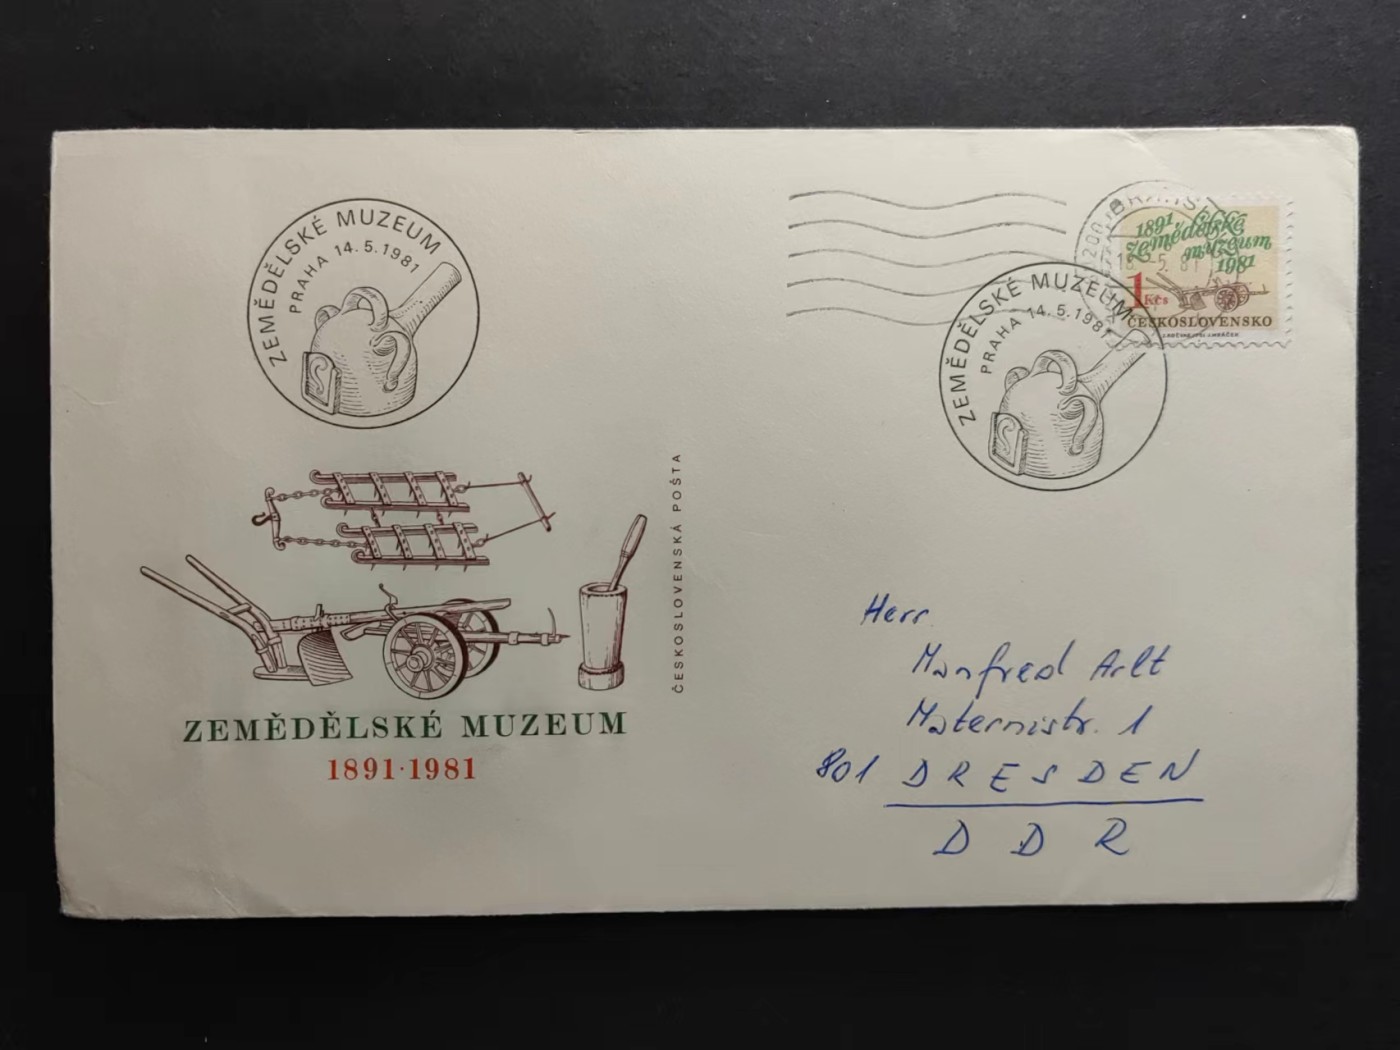 ZEMĚDĚLSKÉ MUZEUM
PRAHA 14.5.1981
ZEMĚDĚLSKÉ MUZEUM
1891·1981
ČESKOSLOVENSKÁ POŠTA
1891
zemědělské
muzeum
1981
1 Kčs
ČESKOSLOVENSKO
5.81
ZEMĚDĚLSKÉ MUZEUM
PRAHA 14.5.1981
Herr
Manfred Arlt
Maternistr. 1
801 DRESDEN
DDR